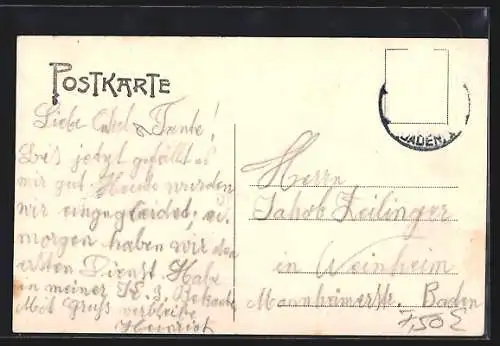 POSTKARTE
Liebe Onkel u. Tante!
Bis jetzt gefällt es
mir gut. Heute wurden
wir eingegleidet,
morgen haben wir den
ersten Dienst. Habe
in meiner
Mit Gruß verbleibe
Heinrich
BADEN
Herrn
Jakob Zeilinger
in Weinheim
Mannheimerstr. Baden
7,50 €